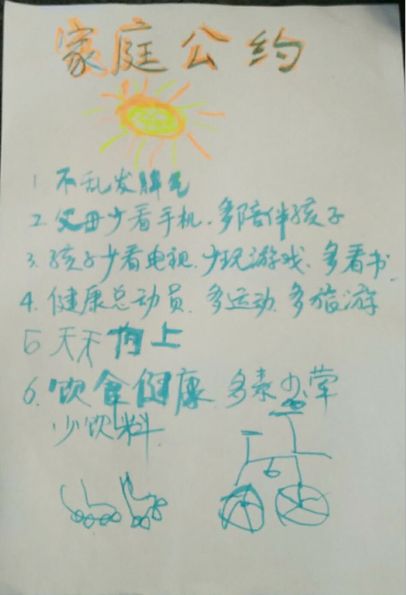 家庭公约
1 不乱发脾气
2 父母少看手机.多陪伴孩子
3.孩子少看电视.少玩游戏.多看书
4.健康总动员.多运动.多旅游
5 天天向上
6.饮食健康.多素少荤
少饮料